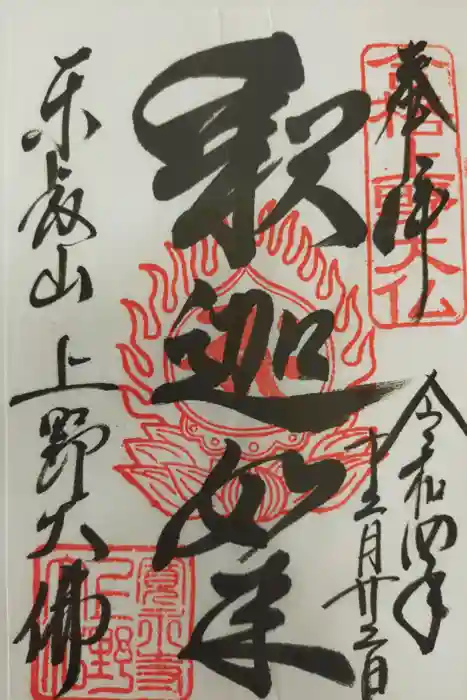 奉拝
合格上野大仏
令和四年
十二月廿三日
釈迦如来
东叡山 上野大佛
寛永寺
上野